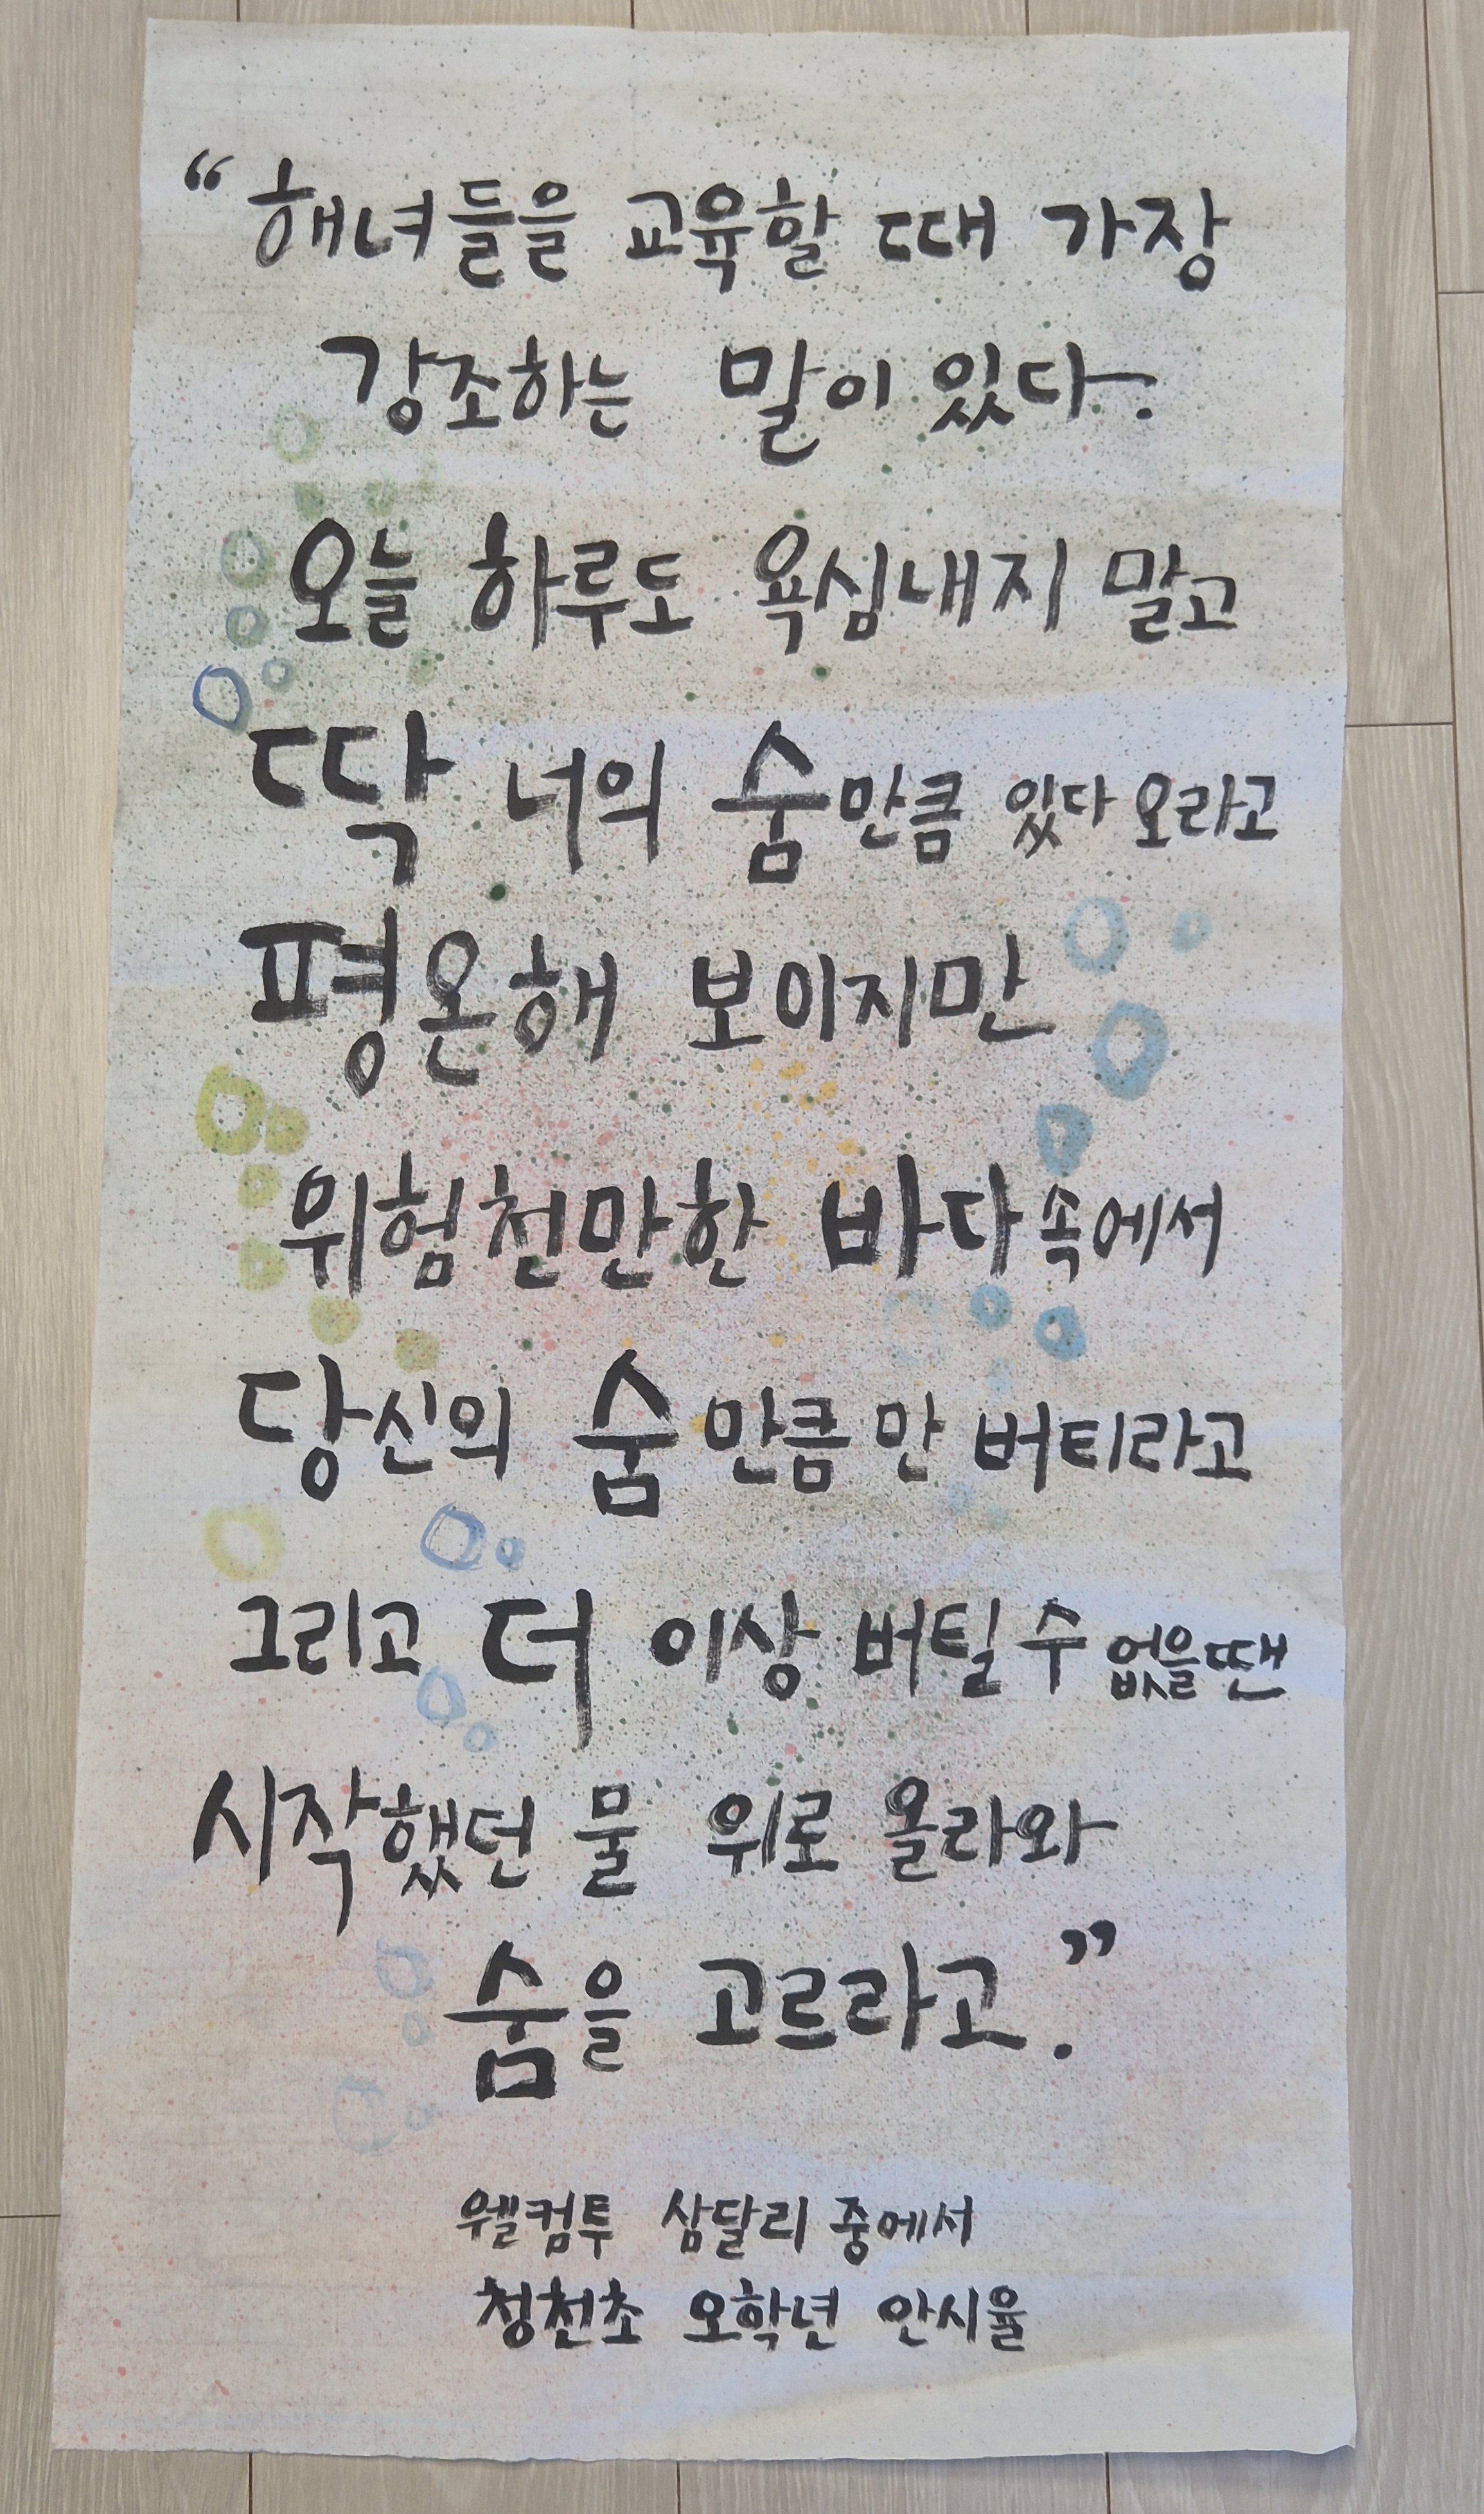 “해녀들을 교육할 때 가장
강조하는 말이 있다.
오늘 하루도 욕심내지 말고
딱 너의 숨만큼 있다 오라고
평온해 보이지만
위험천만한 바다 속에서
당신의 숨만큼만 버티라고
그리고 더 이상 버틸 수 없을땐
시작했던 물 위로 올라와
숨을 고르라고.”
웰컴투 삼달리 중에서
청천초 오학년 안시율